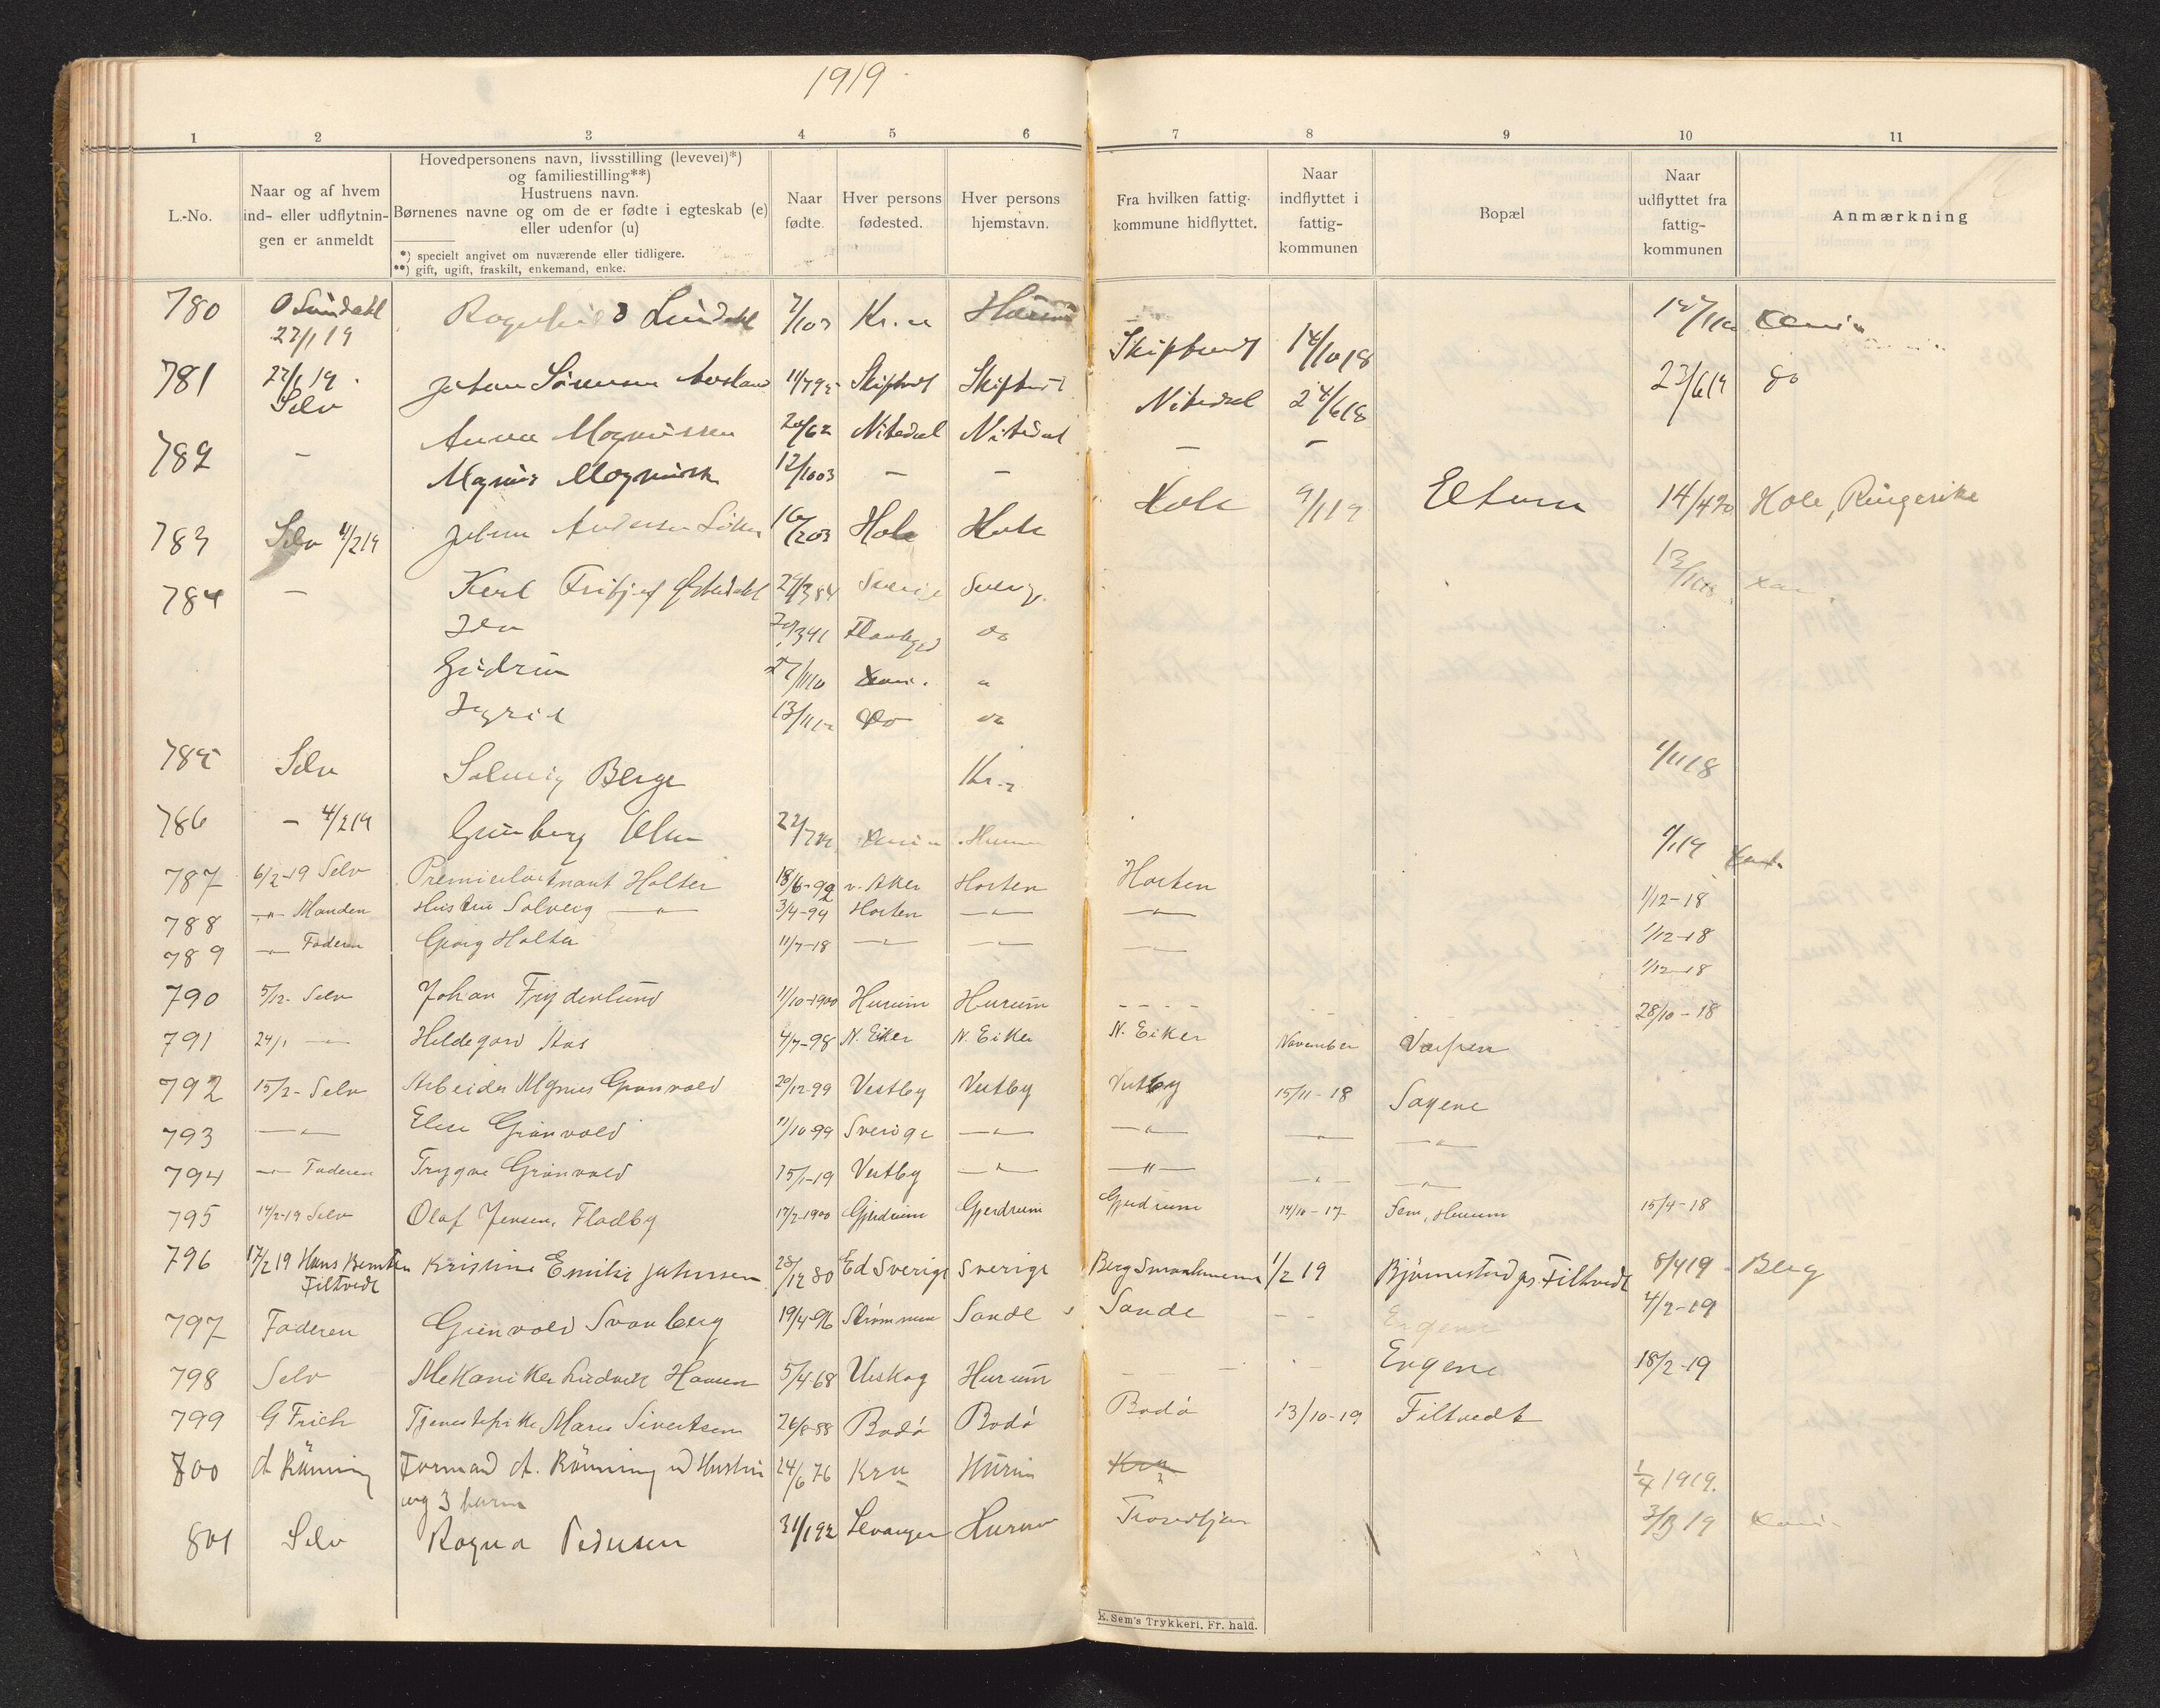 1919
1 2 3 4 5 6 7 8 9 10 11
L.-No.
Naar og af hvem
ind- eller udflytnin-
gen er anmeldt
Hovedpersonens navn, livsstilling (levevei)*)
og familiestilling**)
Hustruens navn.
Børnenes navne og om de er fødte i egteskab (e)
eller udenfor (u)
*) specielt angivet om nuværende eller tidligere.
**) gift, ugift, fraskilt, enkemand, enke.
Naar
fødte.
Hver persons
fødested.
Hver persons
hjemstavn.
Fra hvilken fattig-
kommune hidflyttet.
Naar
indflyttet i
fattig-
kommunen
Bopæl
Naar
udflyttet fra
fattig-
kommunen
Anmærkning
780 O Sundahl 27/1 19 Kr.a
781 27/1 19 Selv Johan 11/7 92 Skiptvedt Skiptvedt Skiptvedt 14/10 18 23/6 19 do
782 — Anna Magnussen Nitedal Nitedal Nitedal 24/6 18
Magnus Magnussen 12/10 03 — — — —
783 Selv 4/2 19 Johan Andersen Hole Hole Hole 9/1 19 14/4 20 Hole, Ringerike
784 — Sverige Sverige
Ida do
Gudrun 27/11 10 "
Ingrid do do
785 Selv Solveig Berge Kr.a 1/11 18
786 — 4/2 19 Olsen Hurum 1/1 19
787 6/2-19 Selv Premierløitnant Holter 18/6-92 v. Aker Horten Horten 1/12-18
788 —"— Manden Hustru Solveig —"— 3/4-94 Horten —"— —"— 1/12-18
789 —"— Faderen Georg Holter 11/7-18 —"— —"— —"— 1/12-18
790 5/12- Selv Johan Frydenlund 11/10-1900 Hurum Hurum - - - - 28/10-18
791 24/1 —"— Hildegard 4/7-98 N. Eiker N. Eiker N. Eiker November
792 15/2- Selv Arbeider Magnus Grønvold 20/12-99 Vestby Vestby Vestby 15/11-18 Sagene
793 —"— Elise Grønvold 11/10-99 Sverige —"— —"— —"— —"—
794 —"— Faderen Trygve Grønvold 15/1-19 Vestby —"— —"— —"— —"—
795 14/2-19 Selv Olaf Jensen, Fladby 17/2-1900 Gjerdrum Gjerdrum Gjerdrum 14/10-17 Sem, Hurum 15/4-18
796 17/2 19 Hans Berntsen Filtvedt Kristine Emilie Johnsen 28/12 80 Ed Sverige Sverige Berg Smaalenene 1/2 19 Bjørnestad ps. Filtvedt 8/4 19 Berg
797 Faderen Grønvold Svanberg 19/4-96 Strømmen Sande Sande - - Engene 4/2-19
798 Selv Mekaniker Ludvik Hansen 5/4-68 Hurum Engene 18/2-19
799 G Frich Tjenestepike Maren Sivertsen 26/8-88 Bodø Bodø Bodø 13/10-19 Filtvedt
800 A Rønning Formand A. Rønning m Hustru 24/6 76 Kra Hurum Kra 1/4 1919.
og 3 barn
801 Selv Ragna Pedersen 31/1 92 Levanger Hurum Trondhjem
E. Sem's Trykkeri, Fr. hald.